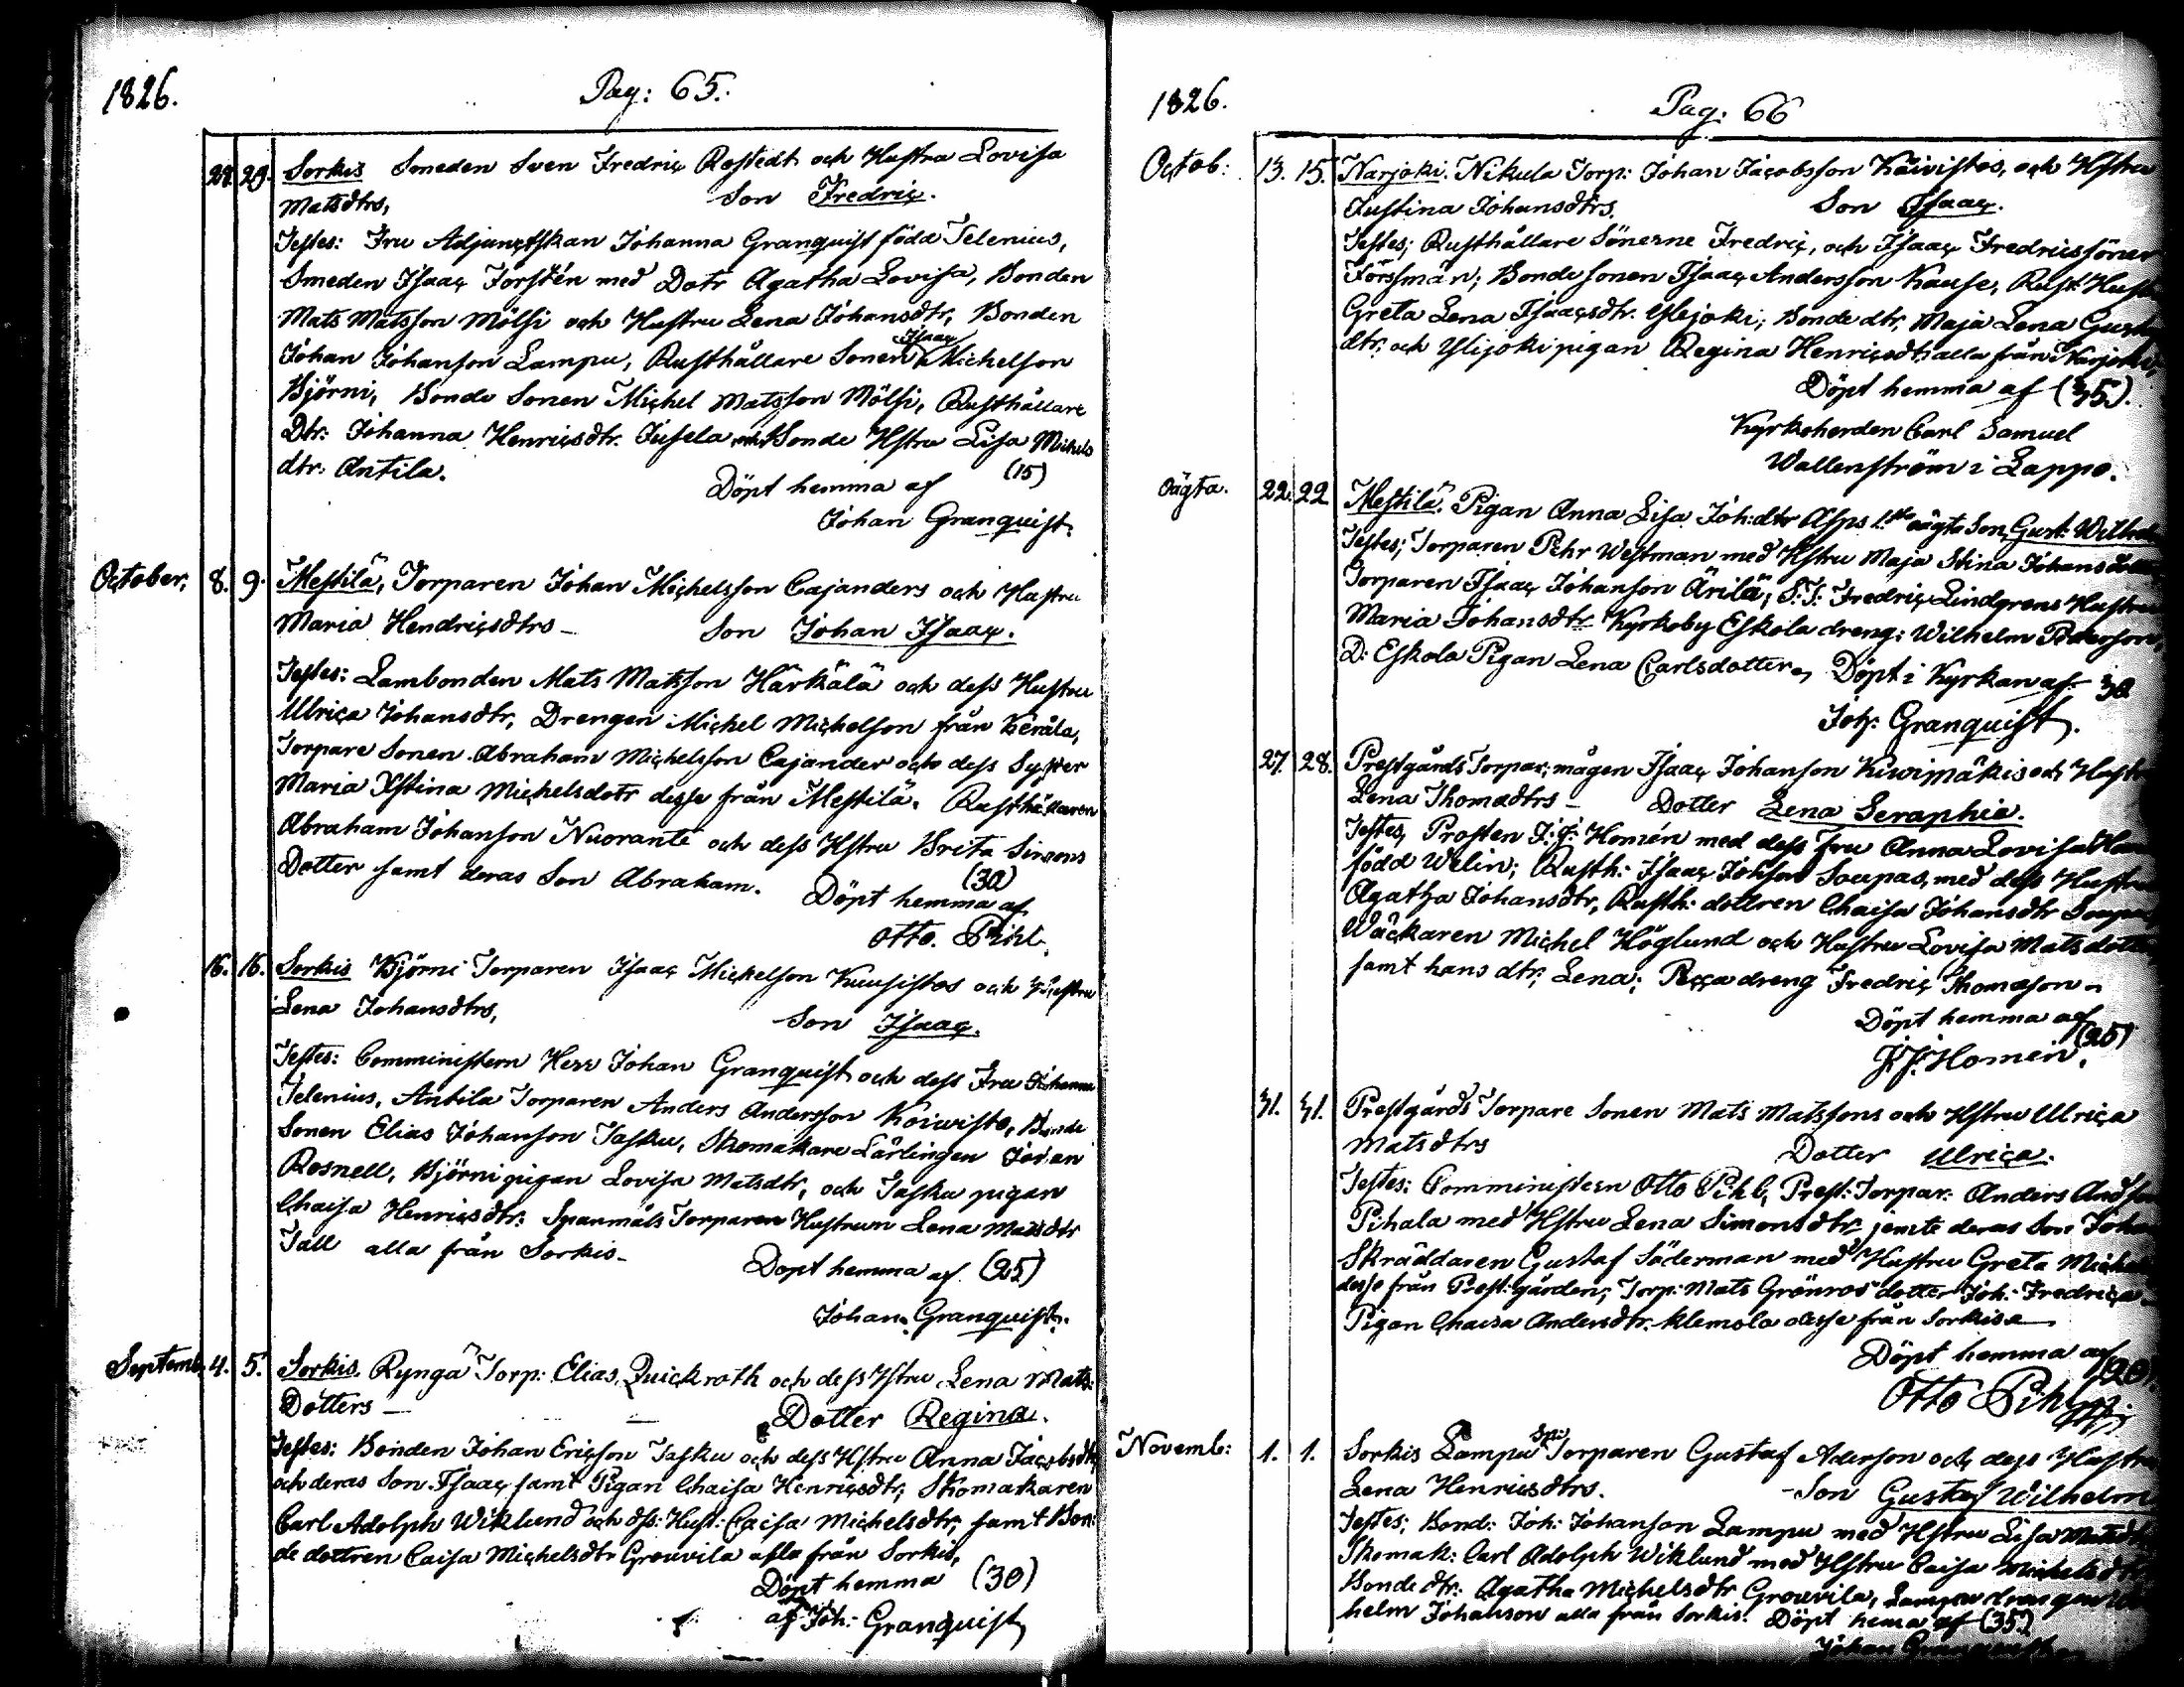 1826.
Pag: 65.
28. 29. Sorkis Smeden Sven Fredric Rostedt och Hustru Lovisa
Matsdtrs, Son Fredric.
Testes: Fru Adjunctskan Johanna Granquist född Telenius,
Smeden Isaac Torstén med Dotr Agatha Lovisa, Bonden
Mats Matsson Mölsi och Hustru Lena Johansdtr, Bonden
Johan Johanson Lampu, Rusthållare Sonen Isaac Michelson
Björni, Bonde Sonen Michel Matsson Mölsi, Rusthållare
Dtr: Johanna Henricsdtr. Jusela och Bonde Hstru Lisa Michels
dtr: Antila. (15)
Döpt hemma af
Johan Granquist.
October. 8. 9. Mestilä, Torparen Johan Michelsson Cajanders och Hustru
Maria Hendricsdtrs – Son Johan Isaac.
Testes: Lambonden Mats Matsson Härkälä och dess Hustru
Ulrica Johansdtr, Drengen Michel Michelson från Keräla,
Torpare Sonen Abraham Michelsson Cajander och dess Syster
Maria Xstina Michelsdotr desse från Mestilä. Rusthållaren
Abraham Johanson Nuoranté och dess Hstru Brita Simons
Dotter samt deras Son Abraham. (30)
Döpt hemma af
Otto. Pihl.
16. 16. Sorkis Björni Torparen Isaac Michelson Kuusistos och Hustru
Lena Johansdtrs, Son Isaac.
Testes: Comministern Herr Johan Granquist och dess Fru Johanna
Telenius, Antila Torparen Anders Andersson Koiwisto, Bonde
Sonen Elias Johanson Tasku, Skomakare Lärlingen Johan
Rosnell, Björni pigan Lovisa Matsdtr, och Tasku pigan
Chaisa Henricsdtr: Sparmåls Torparen Hustrun Lena Matsdtr
Tall alla från Sorkis –
Döpt hemma af (25)
Johan Granquist.
Septemb. 4. 5. Sorkis. Rynga Torp: Elias Quickroth och dess Hstru Lena Mats:
Dotters – Dotter Regina.
Testes: Bonden Johan Ericson Tasku och dess Hstru Anna Jacobsdtr,
och deras Son Isaac samt Pigan Chaisa Henricsdtr; Skomakaren
Carl Adolph Wiklund och dss: Hust: Caisa Michelsdtr; samt Bon:
de dottren Caisa Michelsdtr Grouvila alla från Sorkis,
Döpt hemma (30)
af Joh: Granquist
1826.
Pag: 66
Octob: 13. 15. Narjoki. Nikula Torp: Johan Jacobsson Koivistos, och Hstru
Justina Johansdtrs. Son Isaac.
Testes; Rusthållare Sönerne Fredric, och Isaac Fredricssöner
Förssman; Bonde sonen Isaac Andersson Kause, Rust: Hustr
Greta Lena Isaacsdtr. Ylijoki; Bonde dtr. Maja Lena Gust
dtr: och Ylijoki pigan Regina Henricsdtr. alla från Narjoki;
Döpt hemma af (35).
Kyrkoherden Carl Samuel
Wallenström i Lappo.
Oägta. 22. 22 Mestilä. Pigan Anna Lisa Joh:dtr Asps 1sta oägta Son Gust: Wilhelm
Testes; Torparen Pehr Westman med Hstru Maja Stina Johansdotter
Torparen Isaac Johanson Ärilä; S:J: Fredric Lindgrens Hustru
Maria Johansdtr. Kyrkoby Eskola dreng: Wilhelm Peterson,
D: Eskola Pigan Lena Carlsdotter, Döpt i Kyrkan af 30
Joh: Granquist.
27. 28. Prestgårds Torpar; mågen Isaac Johanson Kiwimäkis och Hustr
Lena Thomædtrs – Dotter Lena Seraphia.
Testes, Prosten J:J: Homén med dess Fru Anna Lovisa
född Welin; Rusth: Isaac Johson Soupas, med dess Hustru
Agatha Johansdtr, Rusth: dottren Chaisa Johansdtr Soupas
Wäckaren Michel Höglund och Hustru Lovisa Matsdotter
samt hans dtr; Lena; Pecca dreng Fredric Thomason –
Döpt hemma af
(25)
J:J: Homén.
31. 31. Prestgårds Torpare Sonen Mats Matssons och Hstru Ulrica
Matsdtrs Dotter Ulrica.
Testes: Comministern Otto Pihl, Prest: Torpar: Anders Andson
Pihala med Hstru Lena Simonsdtr jemte deras Son Johan
Skräddaren Gustaf Söderman med Hustru Greta
desse från Prest:gården; Torp: Mats Grönroos dotter Joh: Fredrica
Pigan Chaisa Andersdtr. Klemola desse från Sorkis
Döpt hemma af
(20)
Otto Pihl
Novemb: 1. 1. Sorkis Lampu Spi: Torparen Gustaf Aderson och dess Hustru
Lena Henricsdtrs. – Son Gustaf Wilhelm
Testes; Bond: Joh: Johanson Lampu med Hstru Lisa Matsdtr
Skomak: Carl Adolph Wiklund med Hstru Caisa Michelsdtr
Bonde dtr: Agatha Michelsdtr Grouvila, Lampu drengen Wil
helm Johanson alla från Sorkis. Döpt hema af (35)
Johan Granquist